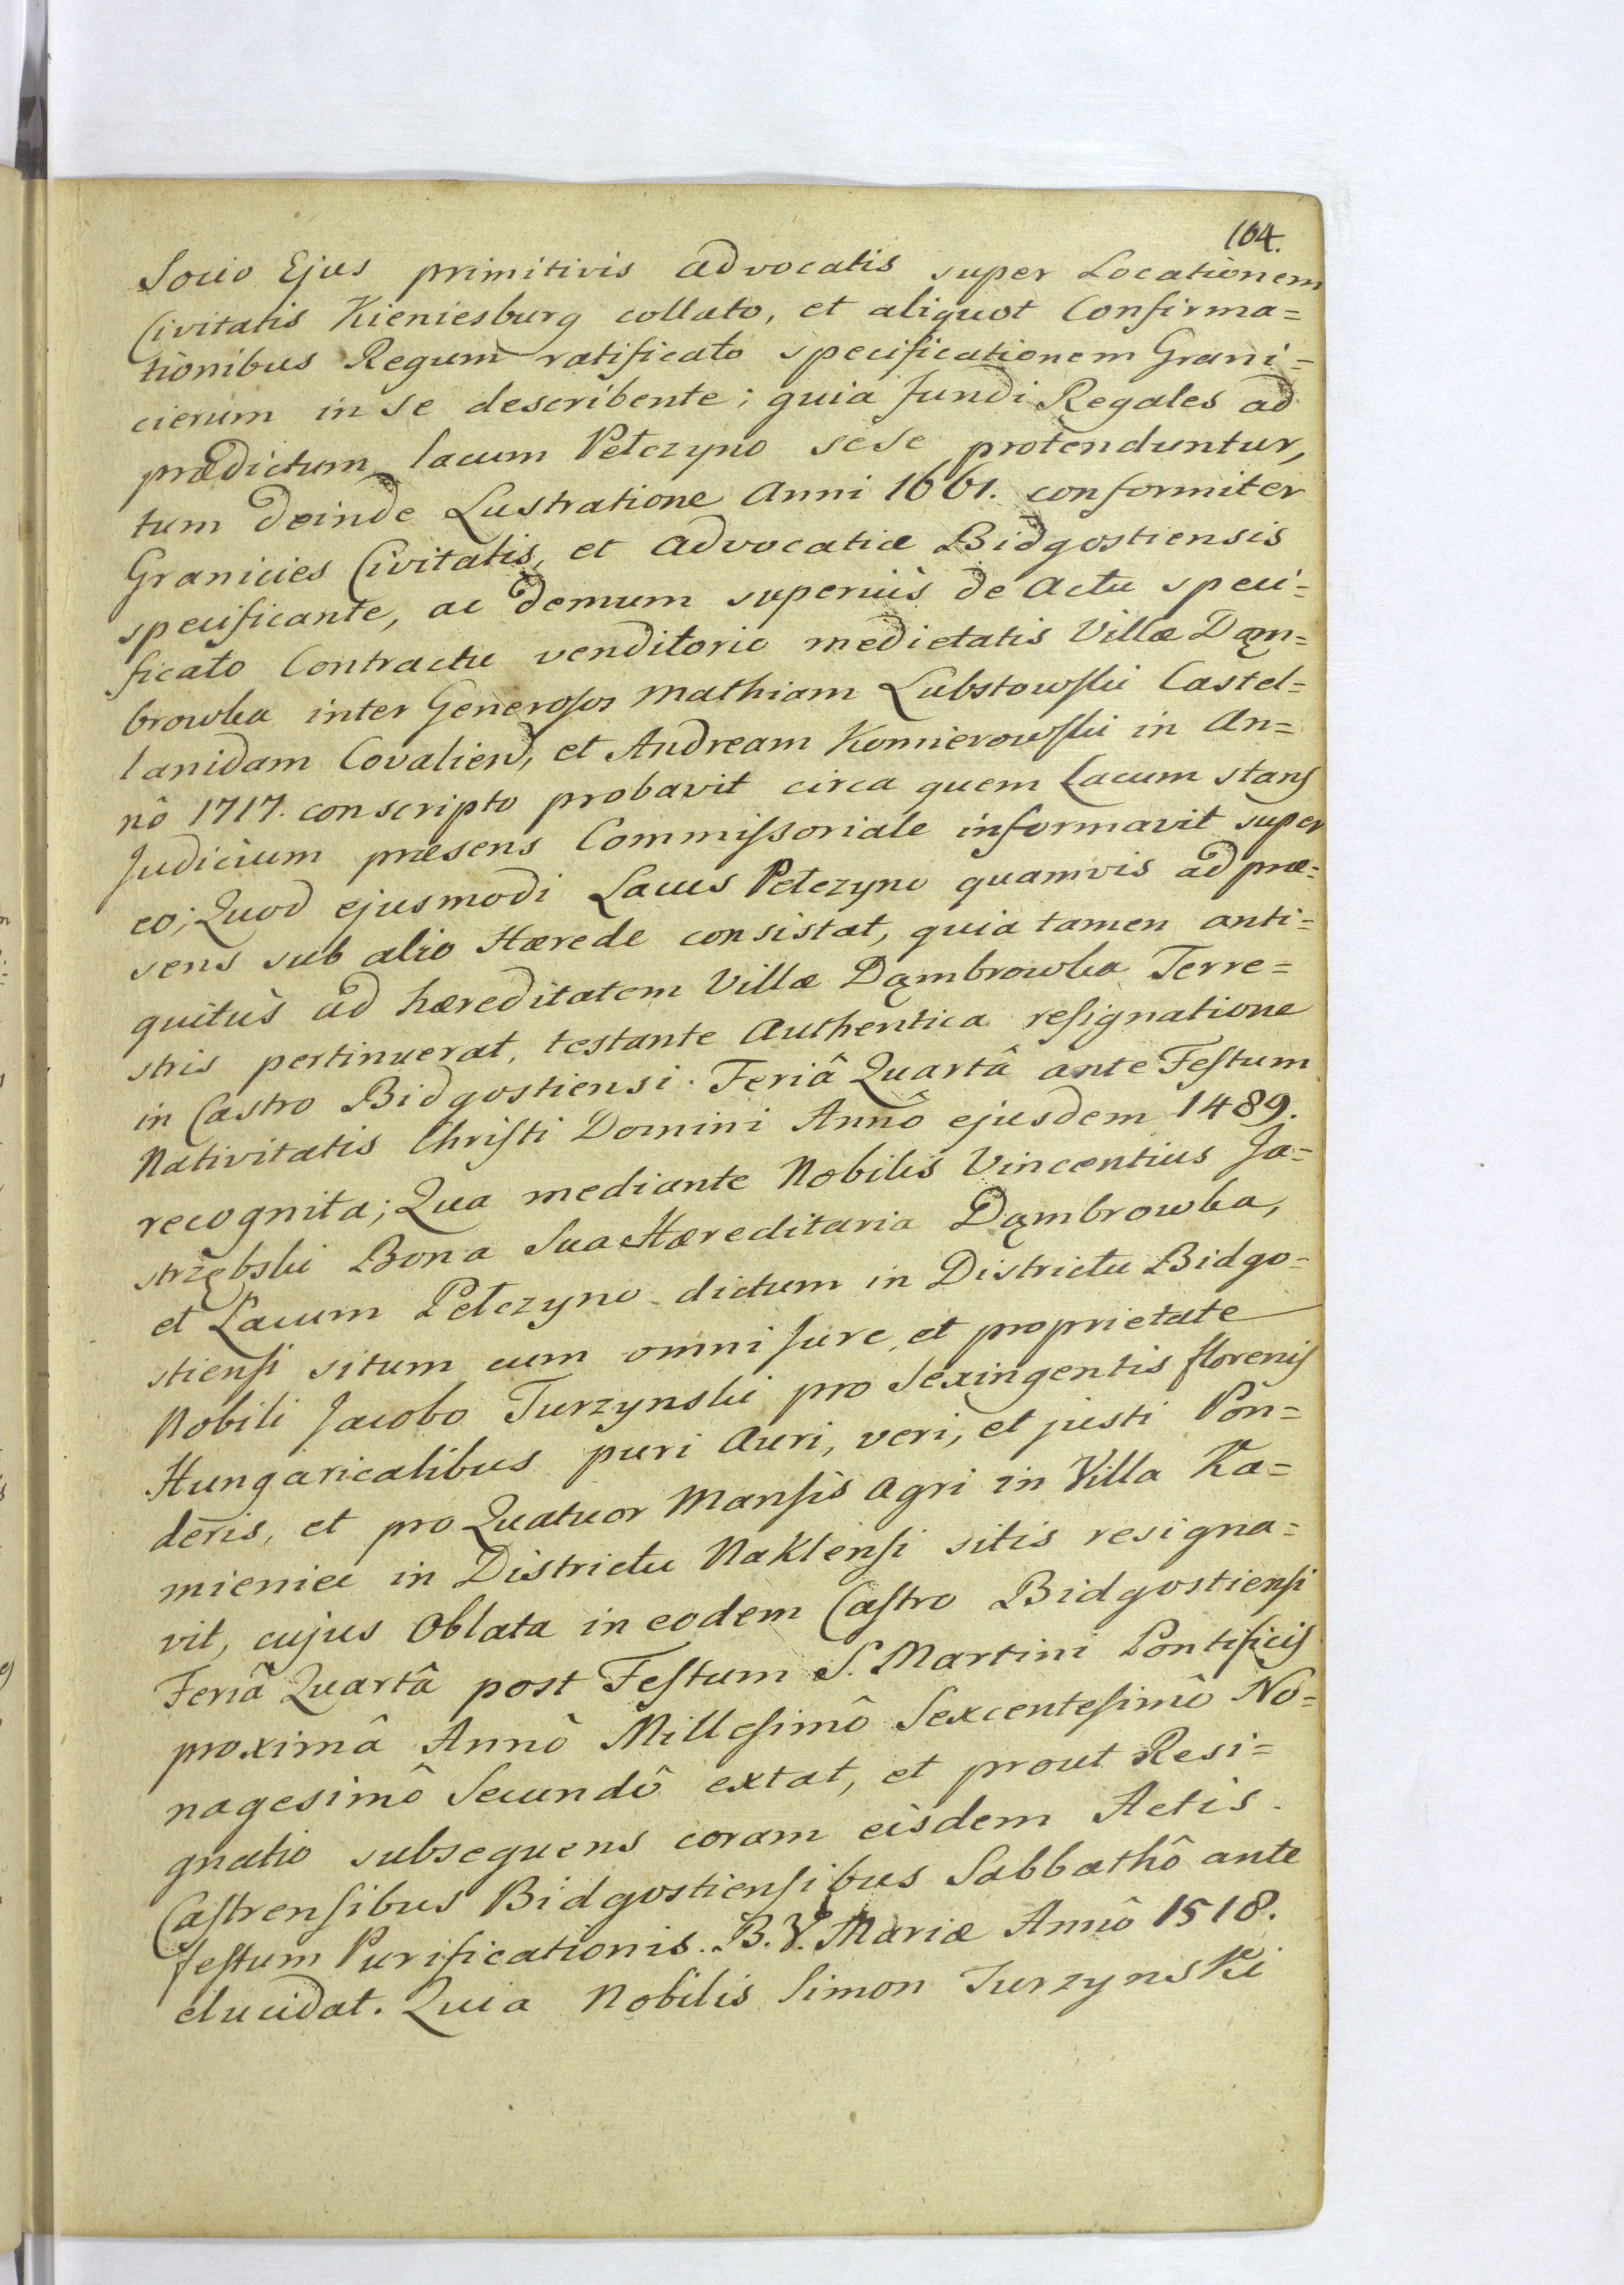 104.
Socio Ejus primitivis advocatis super Locationem
Civitatis Kieniesburg collato, et aliquot Confirma=
tionibus Regum ratificato specificationem Grani=
cierum in se describente; quia fundi Regales ad
prædictum lacum Pełczyno sese protenduntur,
tum deinde Lustratione Anni 1661. conformiter
Granicies Civitatis, et Advocatiæ Bidgostiensis
specificante, ac demum superiùs de Actu speci=
ficato Contractu venditorio medietatis Villæ Dąm=
browka inter Generosos Mathiam Lubstowski Castel=
lanidam Covalien, et Andream Komierowski in An=
nô 1717. conscripto probavit circa quem Lacum stans
Judicium præsens Commissoriale informavit super
eo; Quod ejusmodi Lacus Pełczyno quamvis ad præ=
sens sub alio Hærede consistat, quia tamen anti=
quitùs ad hæreditatem Villæ Dąmbrowka Terre=
stris pertinuerat, testante Authentica resignatione
in Castro Bidgostiensi. Feriâ Quartâ ante Festum
Nativitatis Christi Domini Annô ejusdem 1489.
recognita; Qua mediante Nobilis Vincentius Ja=
strzębski Bona Sua Hæreditaria Dąmbrowka,
et Lacum Pełczyno dictum in Districtu Bidgo=
stiensi situm cum omni Jure, et proprietate
Nobili Jacobo Turzynski pro Sexingentis florenis
Hungaricalibus puri Auri, veri, et justi Pon=
deris, et pro Quatuor Mansis Agri in Villa Ka=
mieniec in Districtu Naklensi sitis resigna=
vit, cujus Oblata in eodem Castro Bidgostiensi
Feriâ Quartâ post Festum S. Martini Pontificis
proximâ Annô Millesimô Sexcentesimô No=
nagesimô Secundô extat, et prout Resi=
gnatio subsequens coram eisdem Actis
Castrensibus Bidgostiensibus Sabbathô ante
festum Purificationis. B. V. Mariæ Annô 1518.
elucidat. Quia Nobilis Simon Turzynski